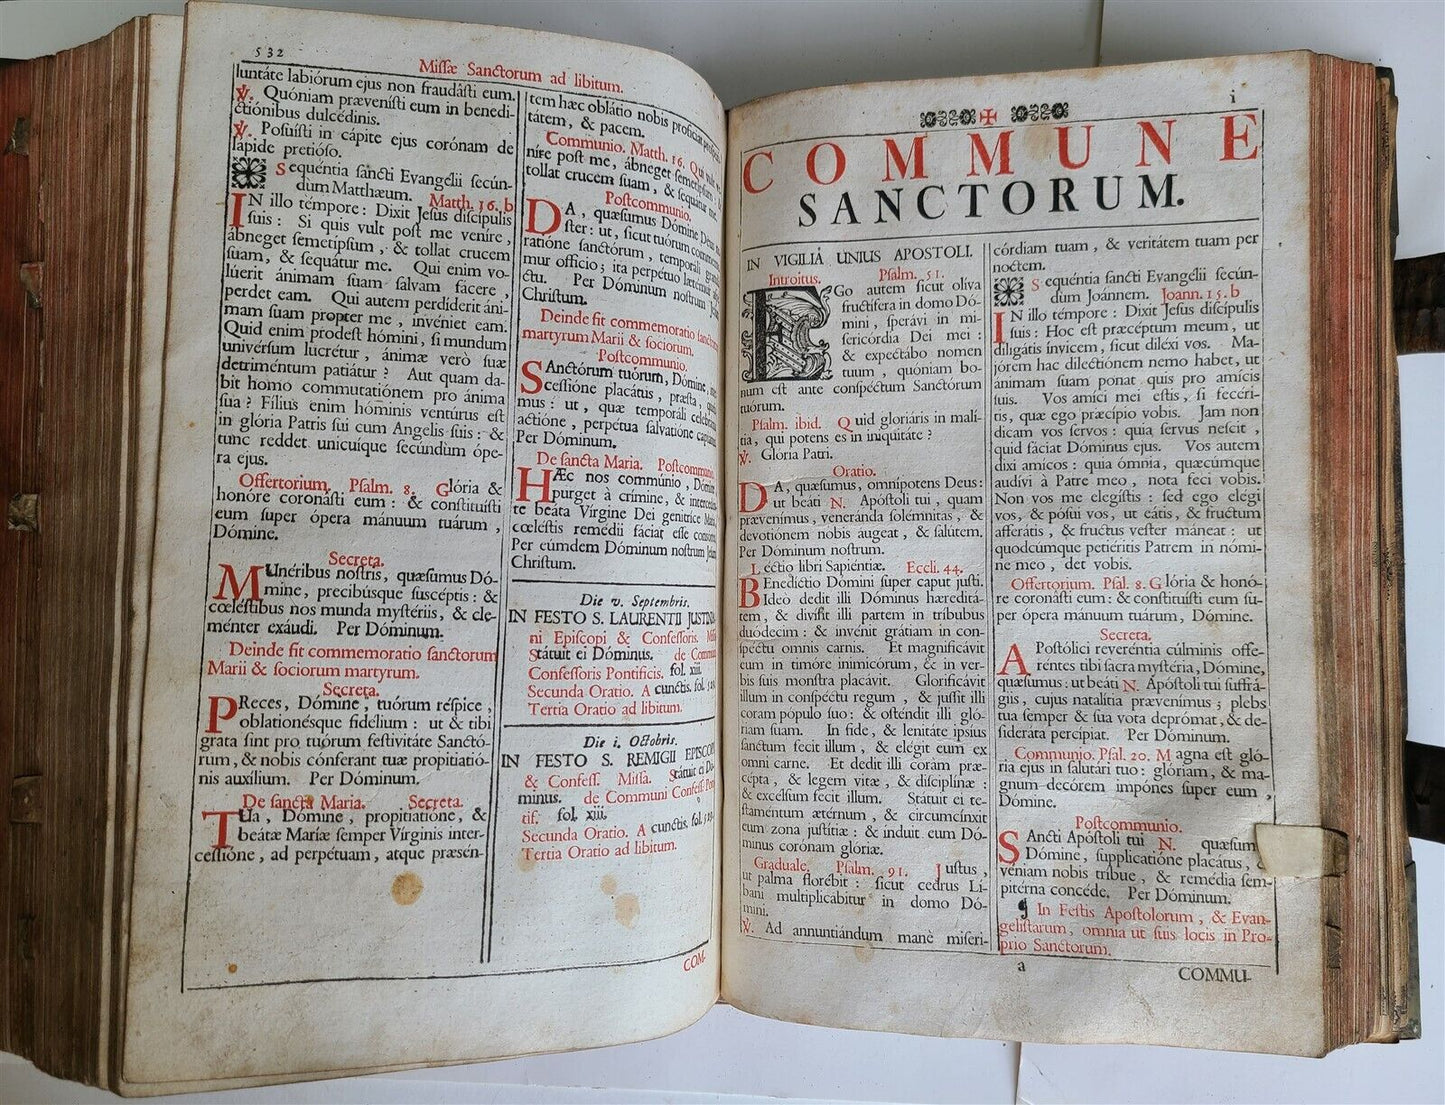 532
Missæ Sanctorum ad libitum.
luntáte labiórum ejus non fraudásti eum.
℣. Quóniam prævenísti eum in benedi-
ctiónibus dulcédinis.
℣. Posuísti in cápite ejus corónam de
lapide pretióso.
Sequéntia sancti Evangélii secún-
dum Matthæum. Matth. 16. b
IN illo témpore: Dixit Jesus discípulis
suis: Si quis vult post me venire,
ábneget semetípsum, & tollat crucem
suam, & sequátur me. Qui enim vo-
lúerit ánimam suam salvam fácere,
perdet eam. Qui autem perdíderit áni-
mam suam propter me, invéniet eam.
Quid enim prodest hómini, si mundum
univérsum lucrétur, ánimæ verò suæ
detriméntum patiátur? Aut quam da-
bit homo commutatiónem pro ánima
sua? Fílius enim hóminis ventúrus est
in glória Patris sui cum Angelis suis: &
tunc reddet unicuíque secúndùm ópe-
ra ejus.
Offertorium. Psalm. 8. Glória &
honóre coronásti eum: & constituísti
eum super ópera mánuum tuárum,
Dómine.
Secreta.
MUnéribus nostris, quæsumus Dó-
mine, precibúsque suscéptis: &
cœléstibus nos munda mystériis, & cle-
ménter exáudi. Per Dóminum.
Deinde fit commemoratio sanctorum
Marii & sociorum martyrum.
Secreta.
PReces, Dómine, tuórum réspice,
oblationésque fidélium: ut & tibi
grata sint pro tuórum festivitáte Sanctó-
rum, & nobis cónferant tuæ propitiatió-
nis auxílium. Per Dóminum.
De sancta Maria. Secreta.
TUa, Dómine, propitiatióne, &
beátæ Maríæ semper Vírginis inter-
cessióne, ad perpétuam, atque præsén-
tem hæc oblátio nobis profíciat
tátem, & pacem.
Communio. Matth. 16. Qui vult ve-
níre post me, ábneget semetípsum: &
tollat crucem suam, & sequátur me.
Postcommunio.
DA, quæsumus Dómine Deus
ster: ut, sicut tuórum commem
ratióne sanctórum, temporáli
mur officio; ita perpétuo lætémur
ctu. Per Dóminum nostrum Jesum
Christum.
Deinde fit commemoratio sanctorum
martyrum Marii & sociorum.
Postcommunio.
SAnctórum tuórum, Dómine,
cessióne placátus, præsta,
mus: ut, quæ temporáli celebrá
actióne, perpétua salvatióne
Per Dóminum.
De sancta Maria. Postcommunio.
HÆc nos commúnio, Dómine,
purget à crímine, & interceden-
te beáta Vírgine Dei genitríce María,
cœléstis remédii fáciat esse consórtes.
Per eúmdem Dóminum nostrum Jesum
Christum.
Die v. Septembris.
IN FESTO S. LAURENTII JUSTINIA
ni Episcopi & Confessoris. Missa
Státuit ei Dóminus. de Commun
Confessoris Pontificis. fol. xiii.
Secunda Oratio. A cunctis. fol.
Tertia Oratio ad libitum.
Die i. Octobris.
IN FESTO S. REMIGII EPISCOPI
& Confess. Missa. Státuit ei Dó-
minus. de Communi Confess: Pon
tif. fol. xiii.
Secunda Oratio. A cunctis. fol.
Tertia Oratio ad libitum.
COM-
i
COMMUNE
SANCTORUM.
IN VIGILIÂ UNIUS APOSTOLI.
Introitus. Psalm. 51.
EGo autem sicut oliva
fructífera in domo Dó-
mini, sperávi in mi-
sericórdia Dei mei:
& expectábo nomen
tuum, quóniam bo-
num est ante conspéctum Sanctórum
tuórum.
Psalm. ibid. Quid gloriáris in malí-
tia, qui potens es in iniquitáte?
℣. Glória Patri.
Oratio.
DA, quæsumus, omnípotens Deus:
ut beáti N. Apóstoli tui, quam
prævenímus, veneránda solémnitas, &
devotiónem nobis augeat, & salútem.
Per Dóminum nostrum.
Léctio libri Sapiéntiæ. Eccli. 44.
BEnedíctio Dómini super caput justi.
Ideò dedit illi Dóminus hæreditá-
tem, & divísit illi partem in tríbubus
duódecim: & invénit grátiam in con-
spéctu omnis carnis. Et magnificávit
eum in timóre inimicórum, & in ver-
bis suis monstra placávit. Glorificávit
illum in conspéctu regum, & jussit illi
coram pópulo suo: & osténdit illi gló-
riam suam. In fide, & lenitáte ipsíus
sanctum fecit illum, & elégit eum ex
omni carne. Et dedit illi coràm præ-
cépta, & legem vitæ, & disciplínæ:
& excélsum fecit illum. Státuit ei te-
staméntum ætérnum, & circumcínxit
eum zona justítiæ: & índuit eum Dó-
minus corónam glóriæ.
Graduale. Psalm. 91. Justus,
ut palma florébit: sicut cedrus Lí-
bani multiplicábitur in domo Dó-
mini.
℣. Ad annuntiándum manè miseri-
córdiam tuam, & veritátem tuam per
noctem.
Sequéntia sancti Evangélii secún-
dum Joánnem. Joann. 15. b
IN illo témpore: Dixit Jesus discípulis
suis: Hoc est præcéptum meum, ut
diligátis ínvicem, sicut diléxi vos. Ma-
jórem hac dilectiónem nemo habet, ut
ánimam suam ponat quis pro amícis
suis. Vos amíci mei estis, si fecéri-
tis, quæ ego præcípio vobis. Jam non
dicam vos servos: quia servus nescit,
quid fáciat Dóminus ejus. Vos autem
dixi amícos: quia ómnia, quæcúmque
audívi à Patre meo, nota feci vobis.
Non vos me elegístis: sed ego elégi
vos, & pósui vos, ut eátis, & fructum
afferátis, & fructus vester máneat: ut
quodcúmque petiéritis Patrem in nómi-
ne meo, det vobis.
Offertorium. Psal. 8. Glória & honó-
re coronásti eum: & constituísti eum su-
per ópera mánuum tuárum, Dómine.
Secreta.
APostólici reveréntia cúlminis offe-
réntes tibi sacra mystéria, Dómine,
quæsumus: ut beáti N. Apóstoli tui suffrá-
giis, cujus natalítia prævenímus; plebs
tua semper & sua vota deprómat, & de-
sideráta percípiat. Per Dóminum.
Communio. Psal. 20. Magna est gló-
ria ejus in salutári tuo: glóriam, & ma-
gnum decórem impónes super eum,
Dómine.
Postcommunio.
SAncti Apóstoli tui N. quæsum
Dómine, supplicatióne placátus, &
véniam nobis tríbue, & remédia sem-
pitérna concéde. Per Dóminum.
¶ In Festis Apostolorum, & Evan-
gelistarum, omnia ut suis locis in Pro-
prio Sanctorum.
a
COMMU-